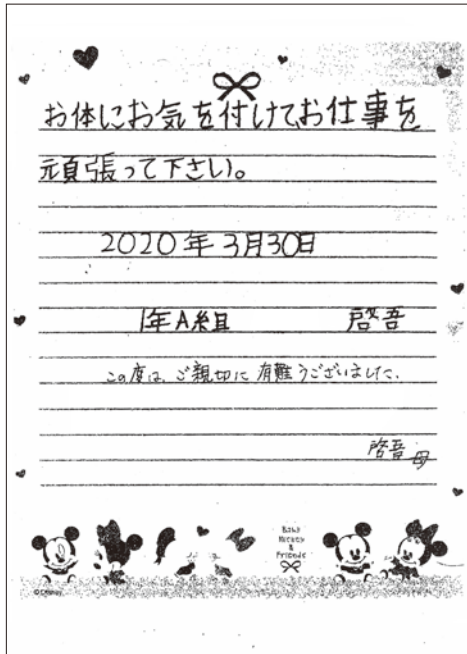 お体にお気を付けてお仕事を
頑張って下さい。
2020年3月30日
1年A組 啓吾
この度は、ご親切に有難うございました。
啓吾 母
Baby
Mickey
&
Friends
©Disney